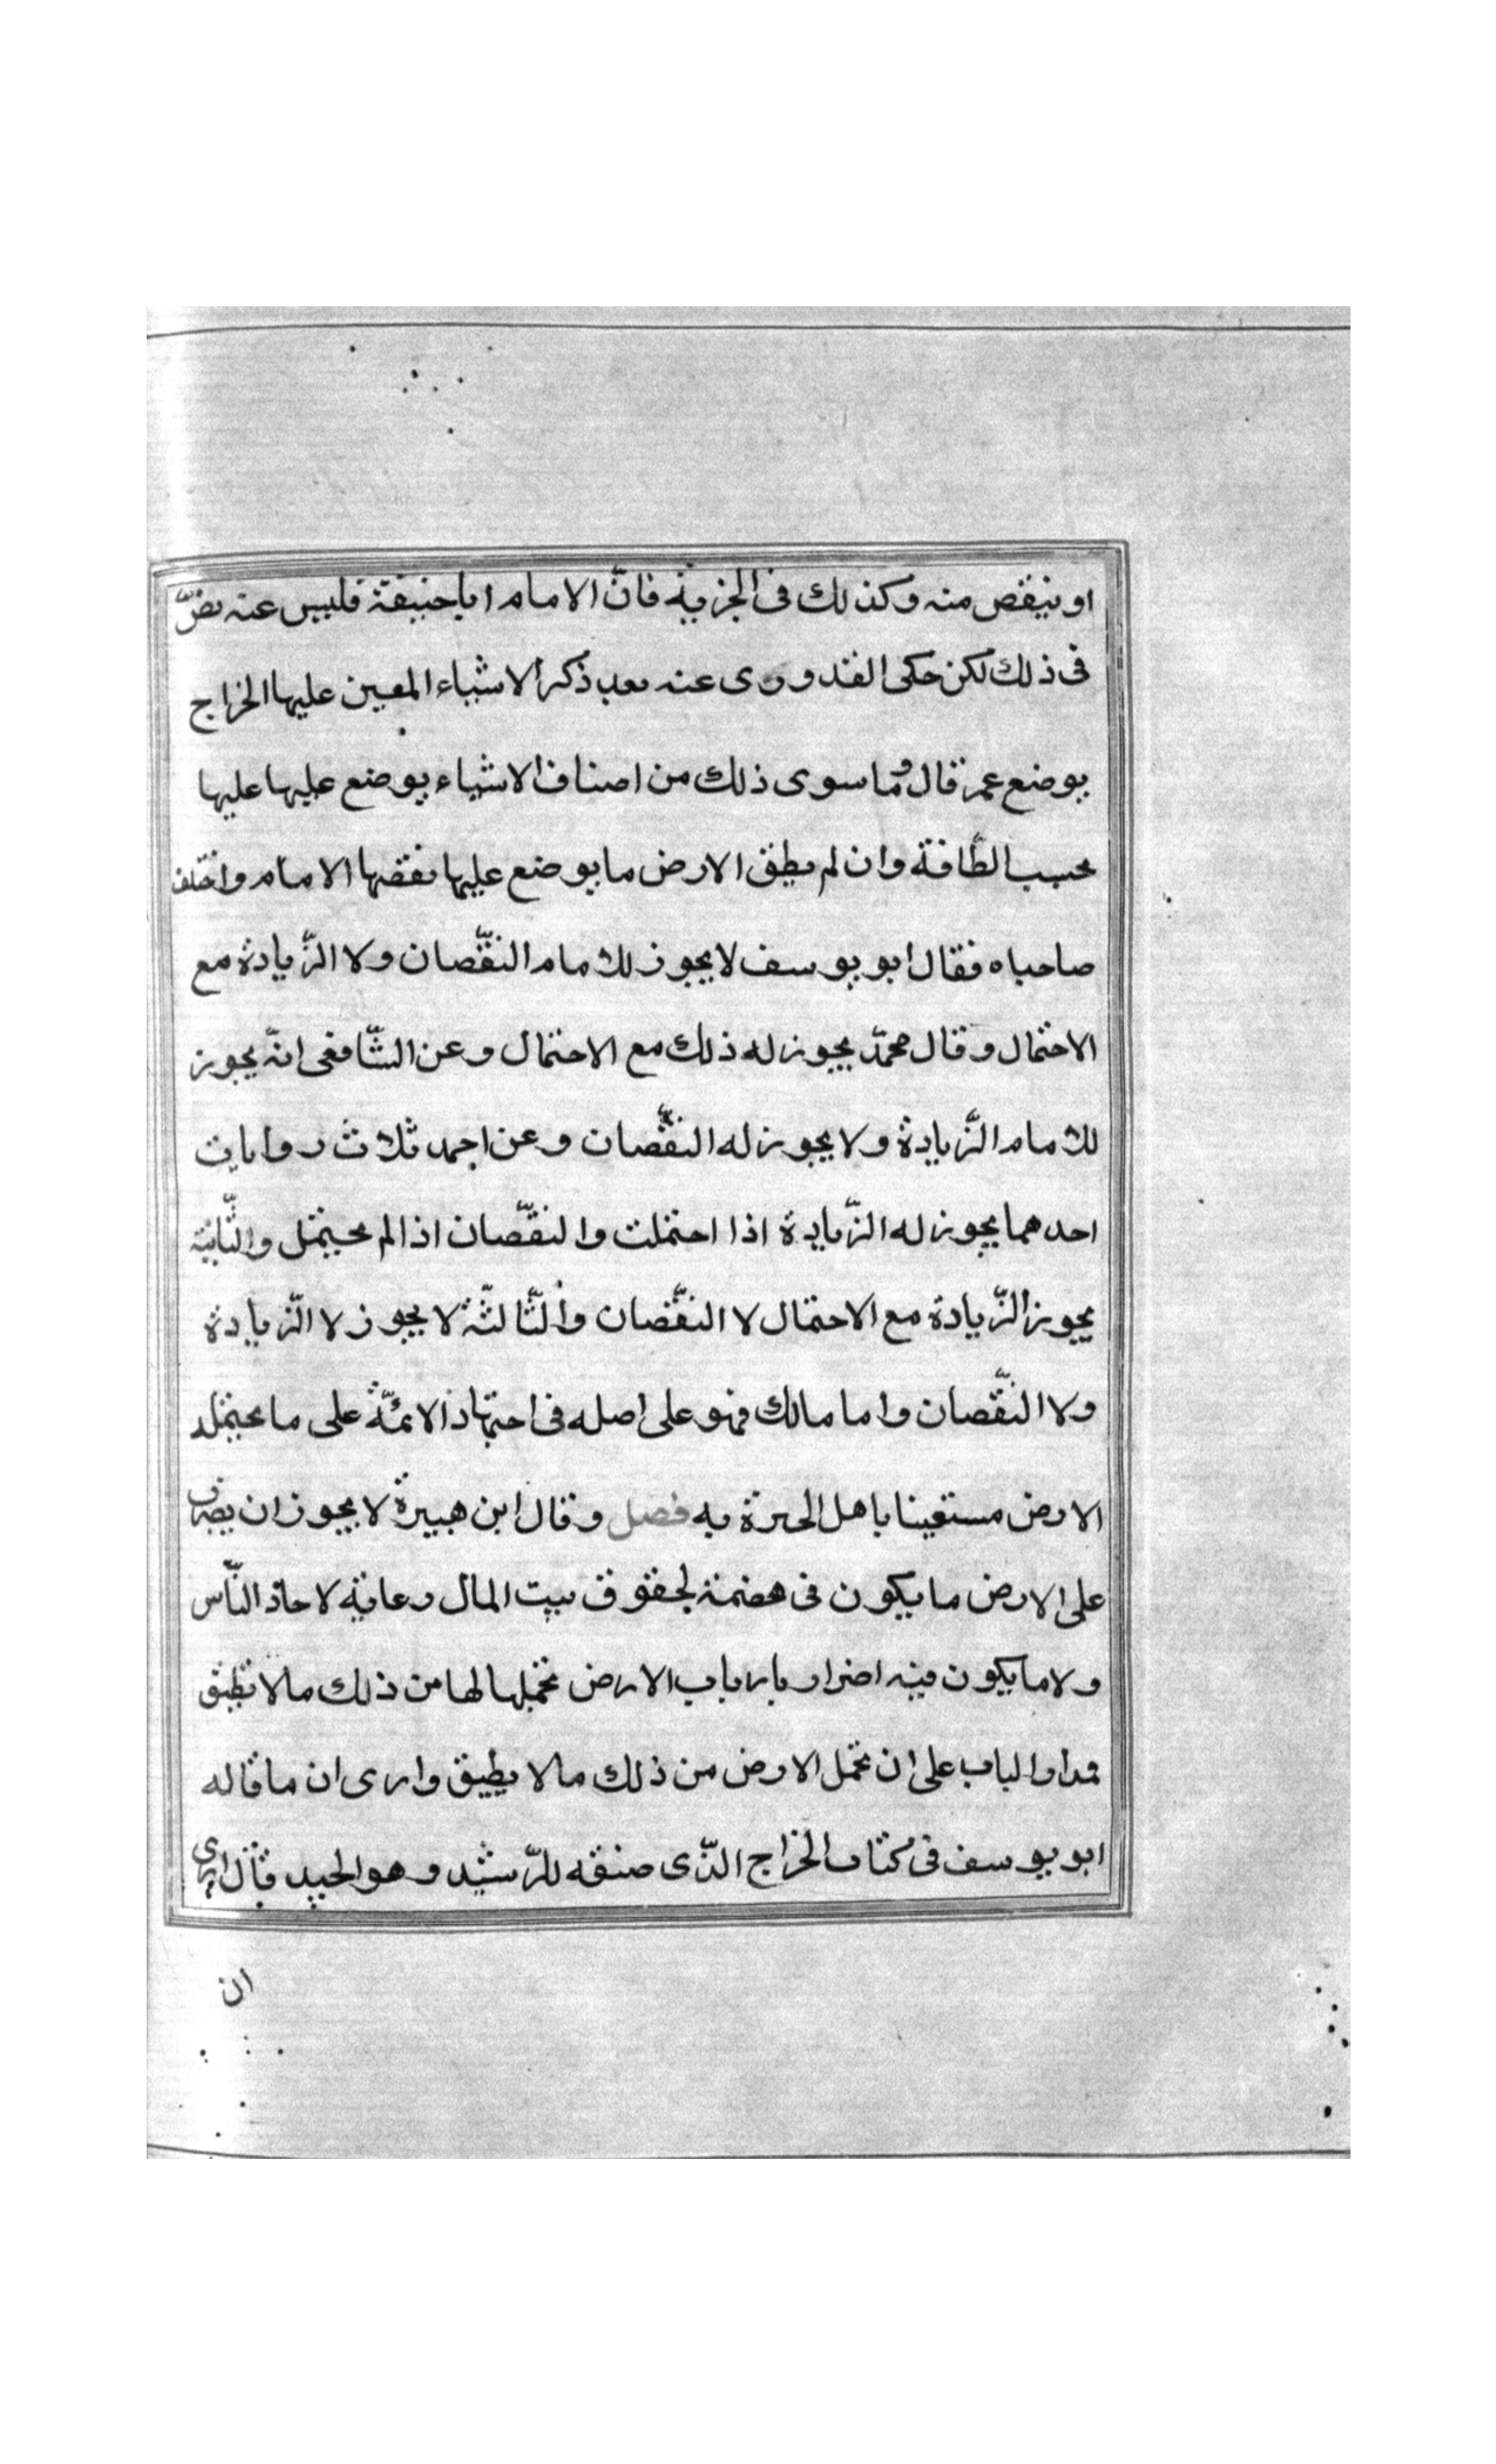 او ينقص منه وكذلك فى الجزية فانّ الامام اباحنيفة فليس عنه نصّ
فى ذلك لكن حكى القدورى عنه بعد ذكر الاشياء المعين عليها الخراج
بوضع عمر قال وما سوى ذلك من اصناف الاشياء يوضع عليها عليها
بحسب الطّاقة وان لم يطق الارض ما يوضع عليها نقصها الامام واختلف
صاحباه فقال ابو يوسف لا يجوز للامام النّقصان ولا الزّيادة مع
الاحتمال وقال محمّد يجوز له ذلك مع الاحتمال وعن الشّافعى انّه يجوز
للامام الزّيادة ولا يجوز له النّقصان وعن احمد ثلاث روايات
احدهما يجوز له الزّيادة اذا احتملت والنّقصان اذا لم يحتمل والثّانية
يجوز الزّيادة مع الاحتمال لا النّقصان والثّالثة لا يجوز لا الزّيادة
ولا النّقصان واما مالك فهو على اصله فى اجتهاد الائمّة على ما يحتمله
الارض مستعينا باهل الخبرة به فصل وقال ابن هبيرة لا يجوز ان يضرب
على الارض ما يكون فى هضمة لحقوق بيت المال رعاية لاحاد النّاس
ولا ما يكون فيه اضرار بارباب الارض تحميلها لها من ذلك مالا تطيق
فمدار الباب على ان تحمل الارض من ذلك مالا يطيق وارى ان ما قاله
ابو يوسف فى كتاب الخراج الذّى صنفه للرّشيد وهو الجيد قال ارى
ان